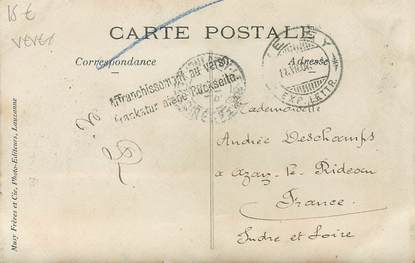 15 €
VEVEY
CARTE POSTALE
Correspondance
Adresse
Affranchissement au verso
Frankatur siehe Rückseite
VEVEY
EXP. LETTR.
Mademoiselle
Andrée Deschamps
à Azay-le-Rideau
France
Indre et Loire
Musy Frères et Cie, Photo-Editeurs, Lausanne